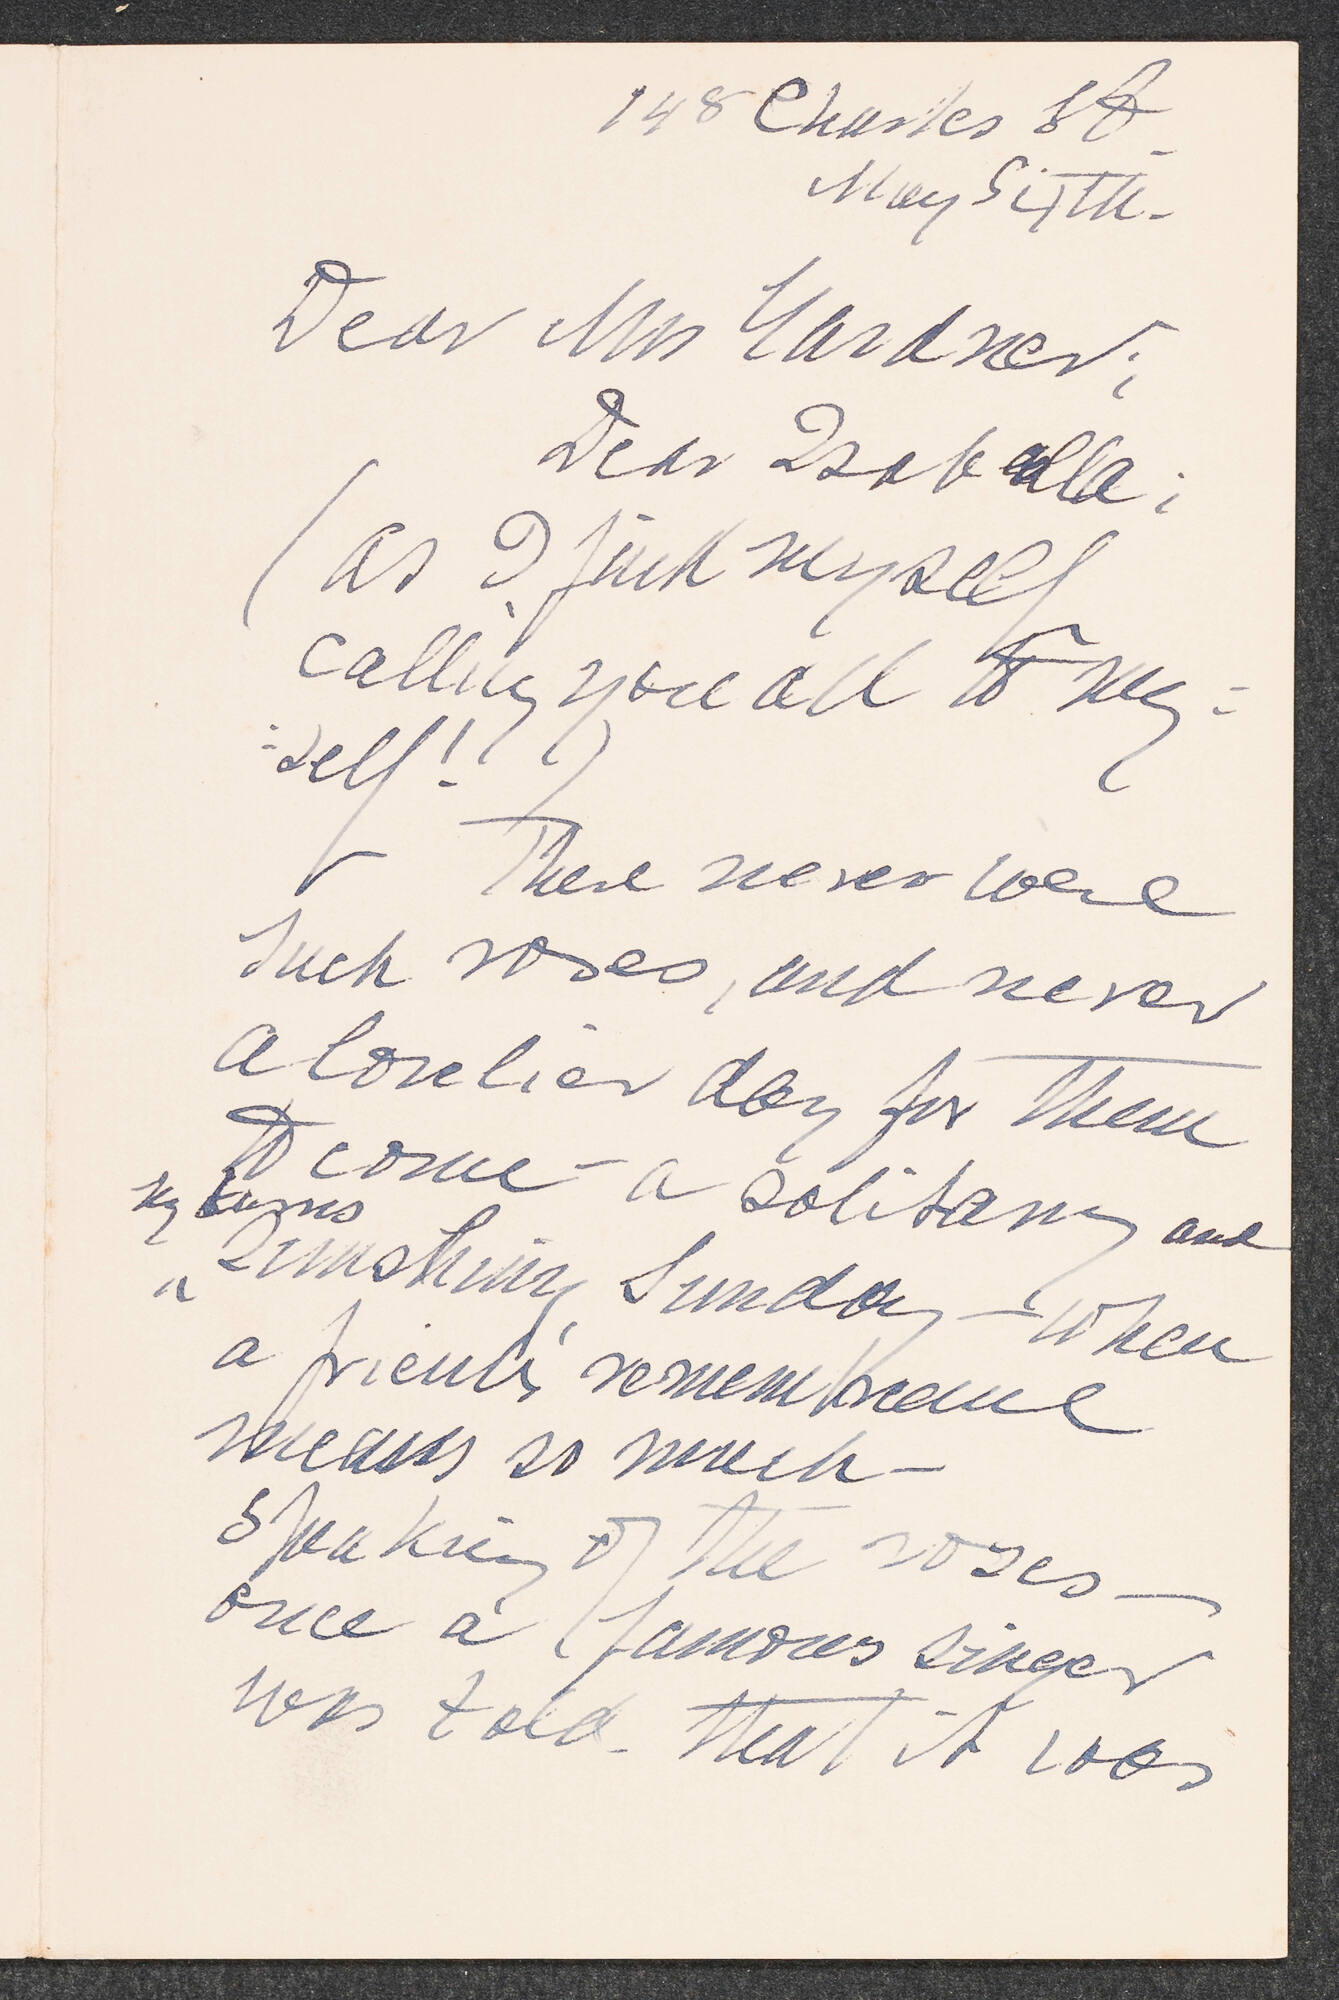 148 Charles St.
May Sixth.
Dear Mrs Gardner;
Dear Isabella;
(as I find myself
calling you all to my=
=self!)
There never were
such roses, and never
a lovelier day for them
to come - a solitary and
by turns
a shiny Sunday - when
a friend's remembrance
means so much -
Speaking of the roses -
once a famous singer
was told that it was